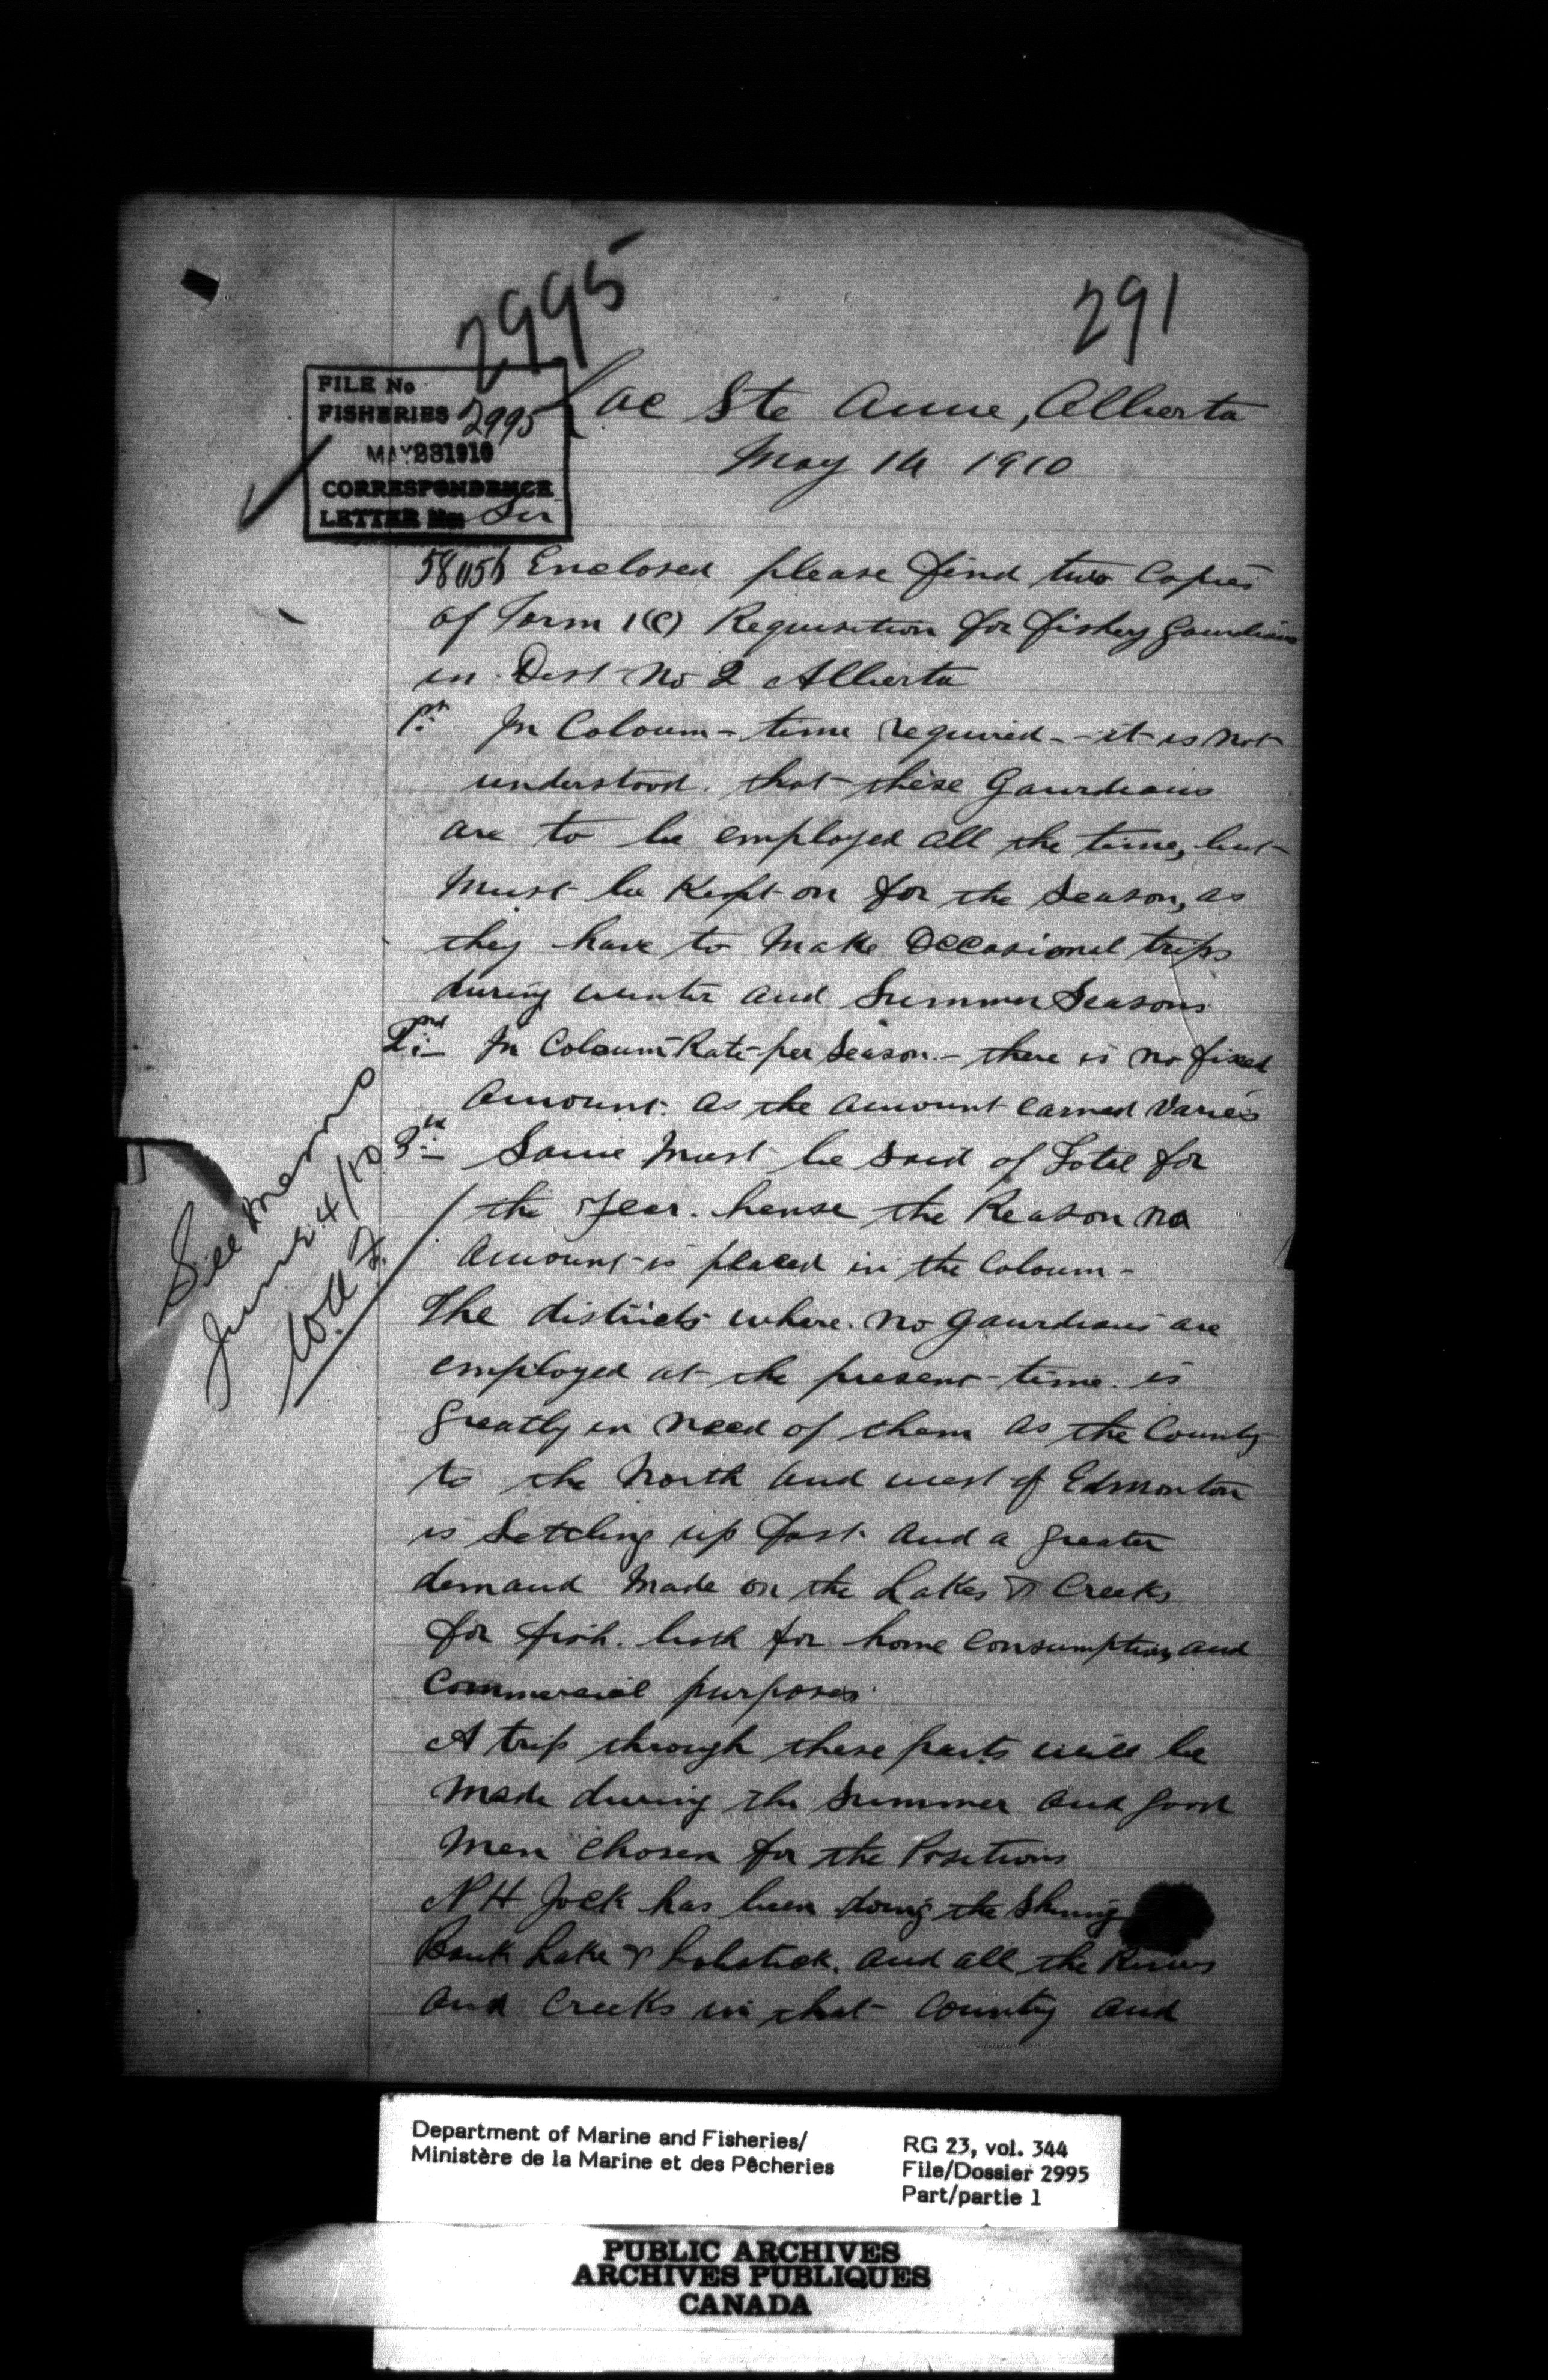 2995
291
FILE No
FISHERIES 2995
MAY 23 1910
CORRESPONDENCE
LETTER No
Lac Ste Anne, Alberta
May 14 1910
Sir
Enclosed please find two Copies
of Form 1(C) Requisition for fishery Gaurdians
in Dist No 2 Alberta
1st In Coloum - time required - - it is not
understood. that these Gaurdians
are to be employed all the time, but
Must be Kept on for the Season, as
they have to Make Occasional trips
during winter and Summer Seasons
2nd In Coloum Rate per Season - there is no fixed
Amount. as the amount earned Varies
3rd Same Must be Said of Total for
the Year. hense the Reason no
amount is placed in the Coloum -
The districts where no gaurdians are
employed at the present time. is
greatly in need of them as the Country
to the North and west of Edmonton
is Settling up fast and a greater
demand Made on the Lakes & Creeks
for fish. both for home Consumption, and
Commercial purposes
A trip through these parts will be
made during the Summer and good
Men Chosen for the Positions
N H Jock has been doing the Shining
Bank Lake & Lobstick. and all the Rivers
and Creeks in that Country and
See Memo
June 4/10
Department of Marine and Fisheries/
Ministère de la Marine et des Pêcheries
RG 23, vol. 344
File/Dossier 2995
Part/partie 1
PUBLIC ARCHIVES
ARCHIVES PUBLIQUES
CANADA